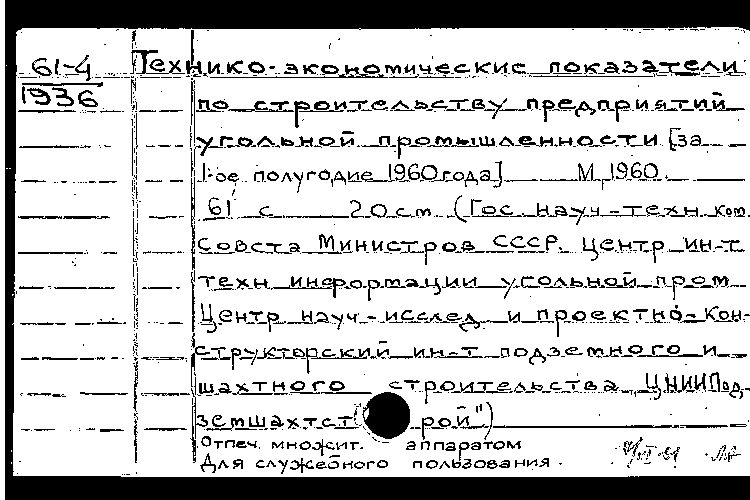 61-4 Технико-экономические показатели
1936 по строительству предприятий
угольной промышленности [за
1-ое полугодие 1960 года] М, 1960.
61 с 20 см (Гос. науч-техн ком.
Совета Министров СССР. Центр ин-т
техн информации угольной пром
Центр науч-исслед и проектно-кон-
структорский ин-т подземного и
шахтного строительства ЦНИИПод-
земшахтст рой")
Отпеч. множит. аппаратом
Для служебного пользования.